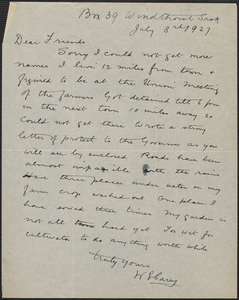 Box 39 Windthorst Sask
July 3rd 1927
Dear Friends
Sorry I could not get more
names I live 12 miles from town &
figured to be at the Union Meeting
of the farmers Got detained till 6 pm
in the next town 18 miles away so
could not get there wrote a strong
letter of protest to the Governor as you
will see by enclosed Roads have been
almost impassible with the rains
Have three places under water on my
farm crop washed out One place I
have sowed three times My garden is
not all hoed yet Too wet for
cultivator to do any thing worth while
Truly yours
W S Carey